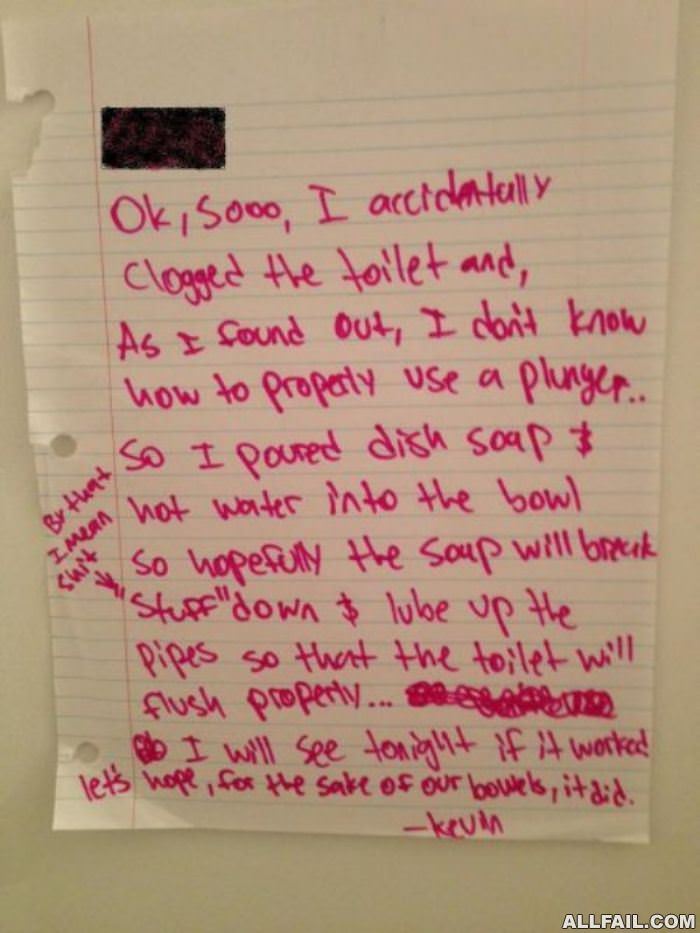 Ok, Sooo, I accidentally
clogged the toilet and,
As I found out, I don't know
how to properly use a plunger..
So I poured dish soap &
hot water into the bowl
so hopefully the soap will break
By that
I mean
shit
"Stuff" down & lube up the
pipes so that the toilet will
flush properly...
I will see tonight if it worked
let's hope, for the sake of our bowels, it did.
-Kevin
ALLFAIL.COM